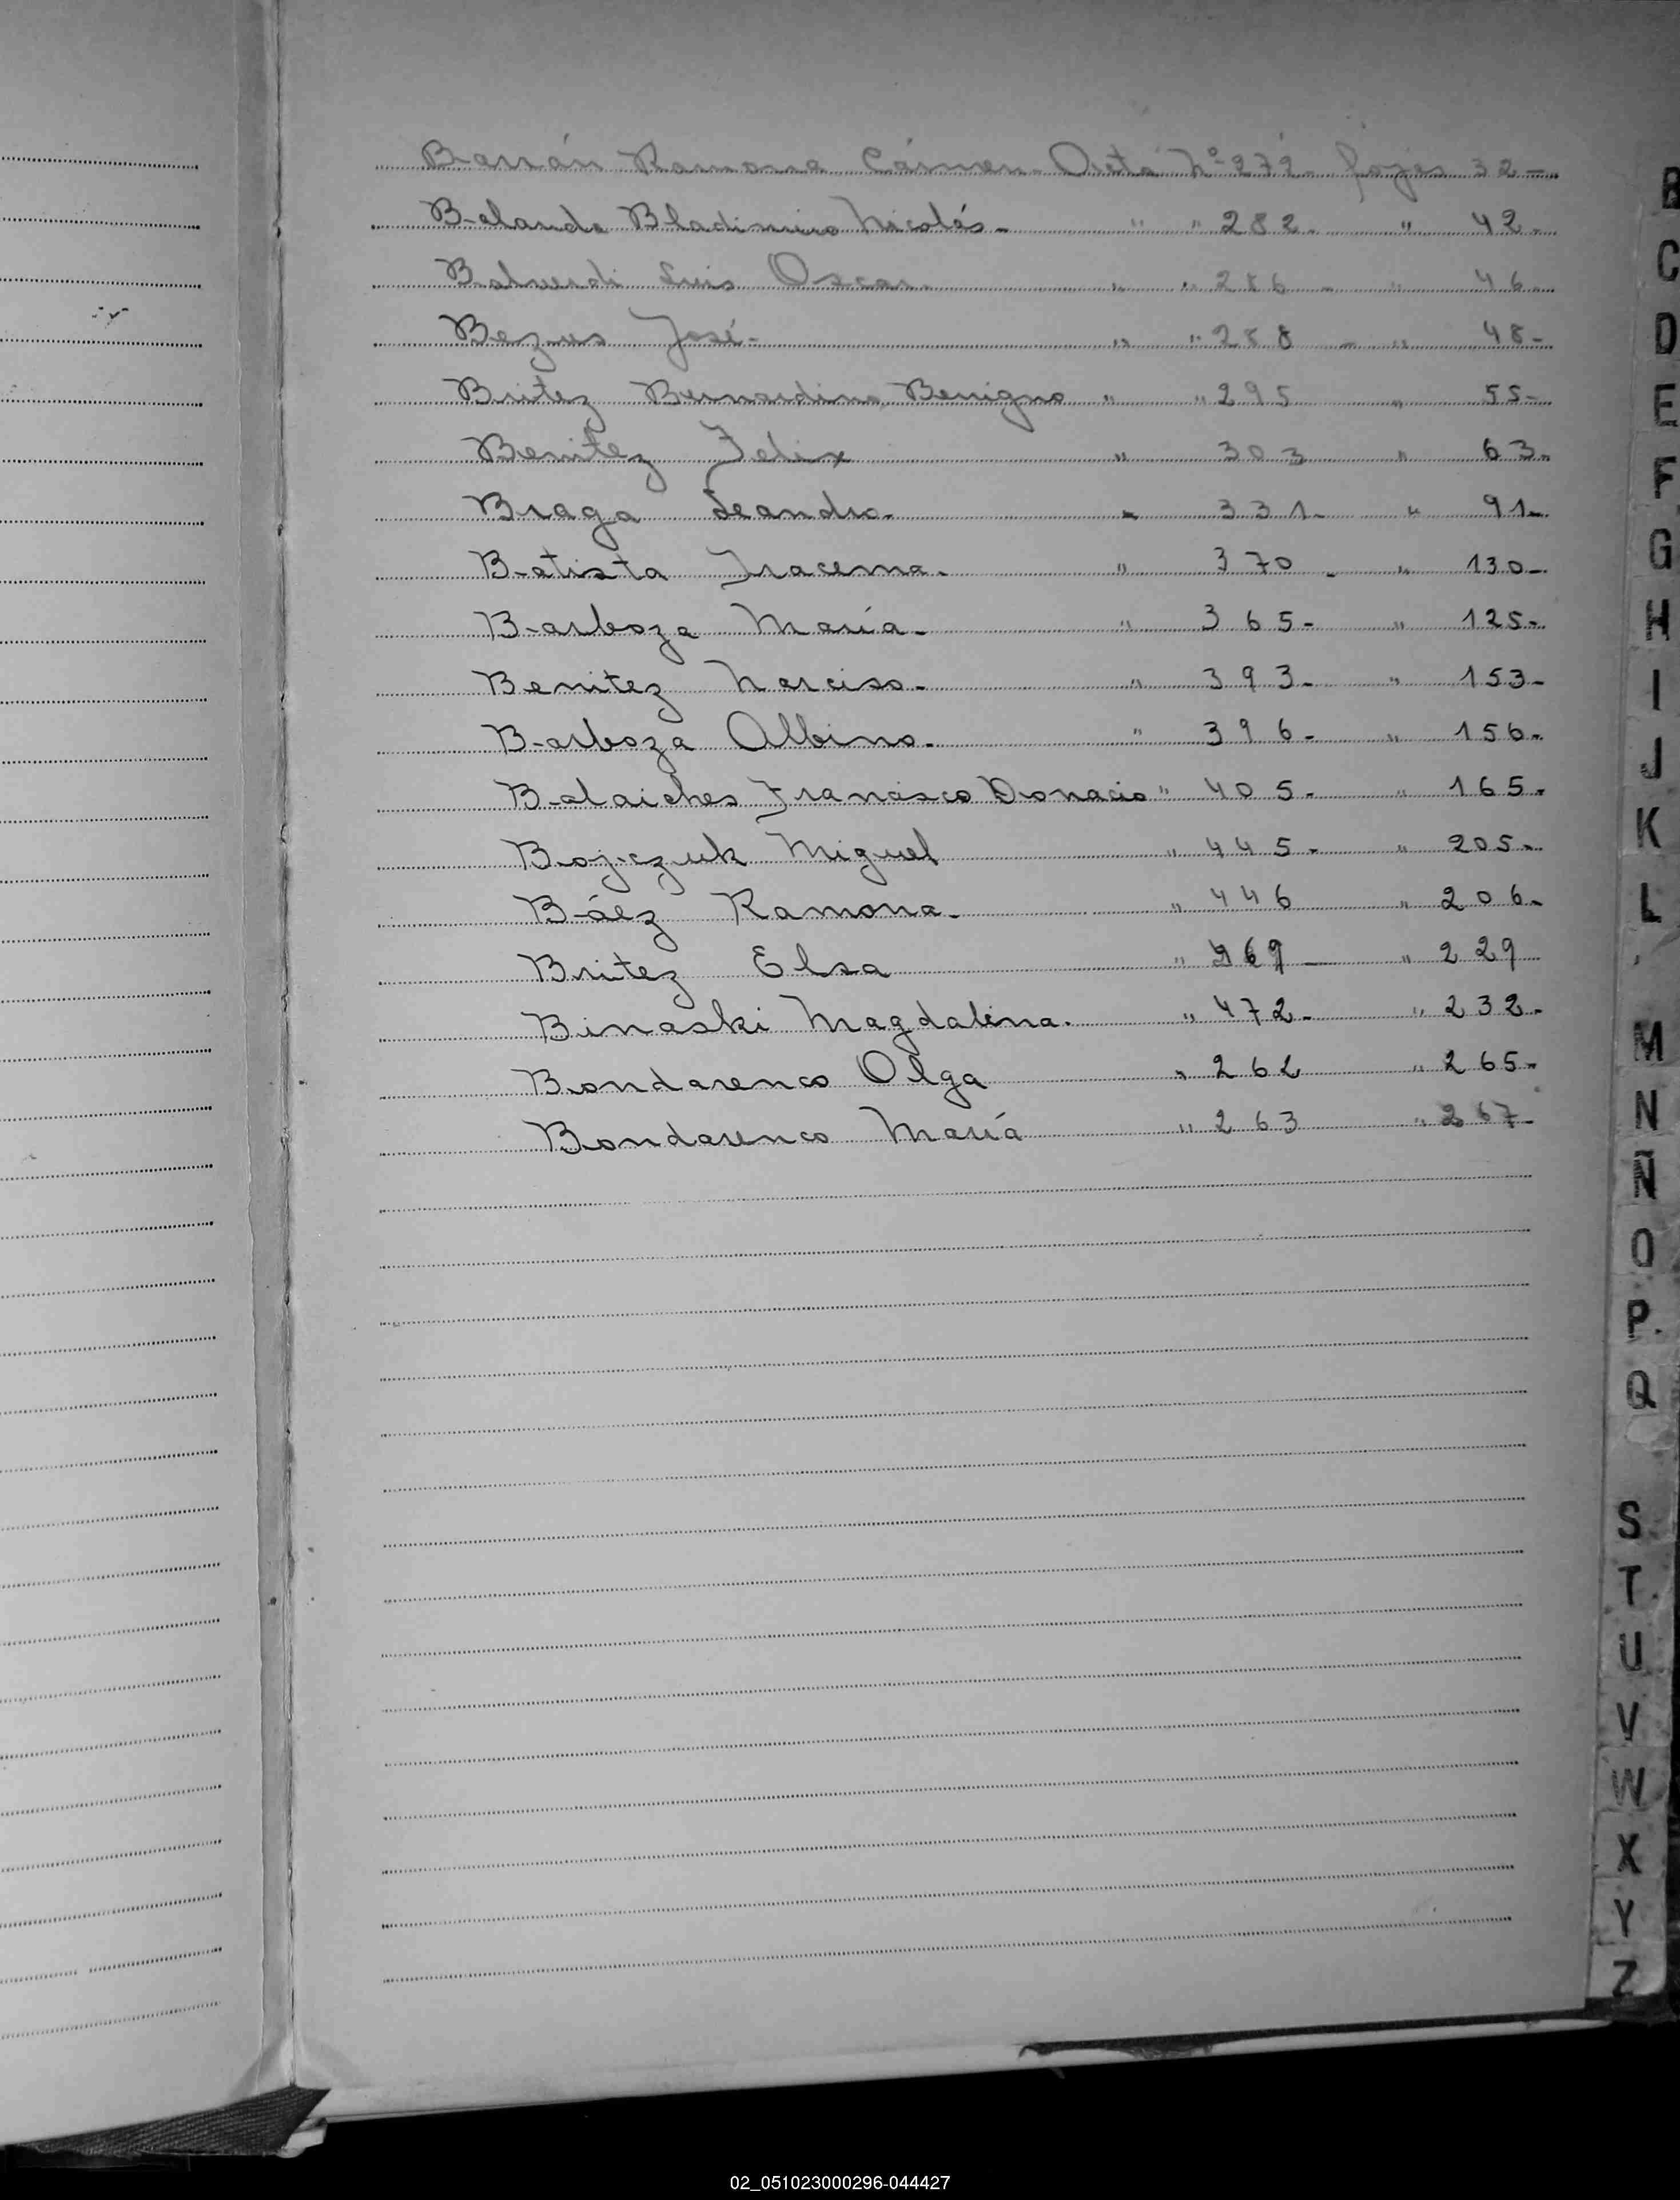 Barrán Ramona Cármen. Acta Nº 272. fojas 32-
Belando Bladimiro Nicolás. " " 282. " 42.
Balverdi Luis Oscar. " " 286 - " 46.
Bezus José. " " 288 - " 48-
Britez Bernardino Benigno " " 295 " 55-
Benitez Felix " 303 " 63.
Braga Leandro. " 331- " 91-
Batista Iracema. " 370 - " 130-
Barboza María. " 365- " 125-
Benitez Narciso. " 393- " 153-
Barboza Albino. " 396- " 156-
Balaiches Francisco Donacio " 405- " 165-
Bojczuk Miguel " 445- " 205-
Báez Ramona. " 446 " 206-
Britez Elsa " 469 - " 229
Binaski Magdalena. " 472- " 232-
Bondarenco Olga " 262 " 265-
Bondarenco María " 263 " 267-
B
C
D
E
F
G
H
I
J
K
L
M
N
Ñ
O
P.
Q
S
T.
U
V
W
X
Y
Z
02_051023000296-044427